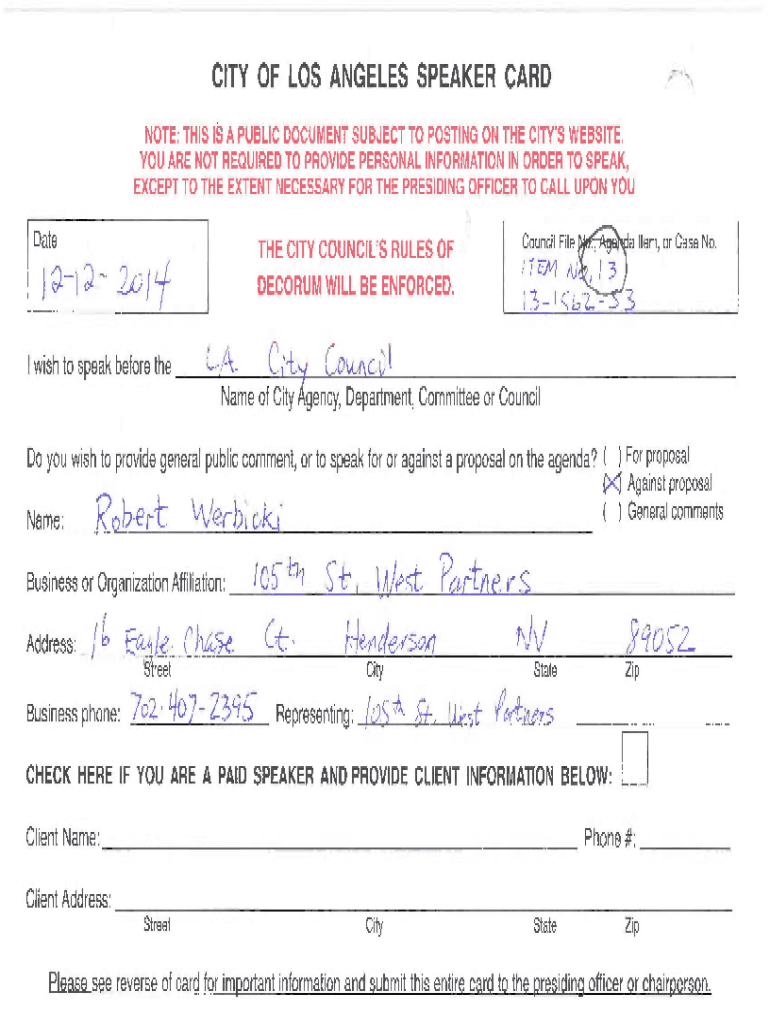 CITY OF LOS ANGELES SPEAKER CARD
NOTE: THIS IS A PUBLIC DOCUMENT SUBJECT TO POSTING ON THE CITY'S WEBSITE.
YOU ARE NOT REQUIRED TO PROVIDE PERSONAL INFORMATION IN ORDER TO SPEAK,
EXCEPT TO THE EXTENT NECESSARY FOR THE PRESIDING OFFICER TO CALL UPON YOU
Date
12-12-2014
THE CITY COUNCIL'S RULES OF
DECORUM WILL BE ENFORCED.
Council File No., Agenda Item, or Case No.
ITEM No. 13
13-1562-S3
I wish to speak before the L.A. City Council
Name of City Agency, Department, Committee or Council
Do you wish to provide general public comment, or to speak for or against a proposal on the agenda? ( ) For proposal
(X) Against proposal
( ) General comments
Name: Robert Werbicki
Business or Organization Affiliation: 105th St. West Partners
Address: 16 Eagle Chase Ct. Henderson NV 89052
Street City State Zip
Business phone: 702-407-2395 Representing: 105th St. West Partners
CHECK HERE IF YOU ARE A PAID SPEAKER AND PROVIDE CLIENT INFORMATION BELOW:
Client Name: Phone #:
Client Address:
Street City State Zip
Please see reverse of card for important information and submit this entire card to the presiding officer or chairperson.